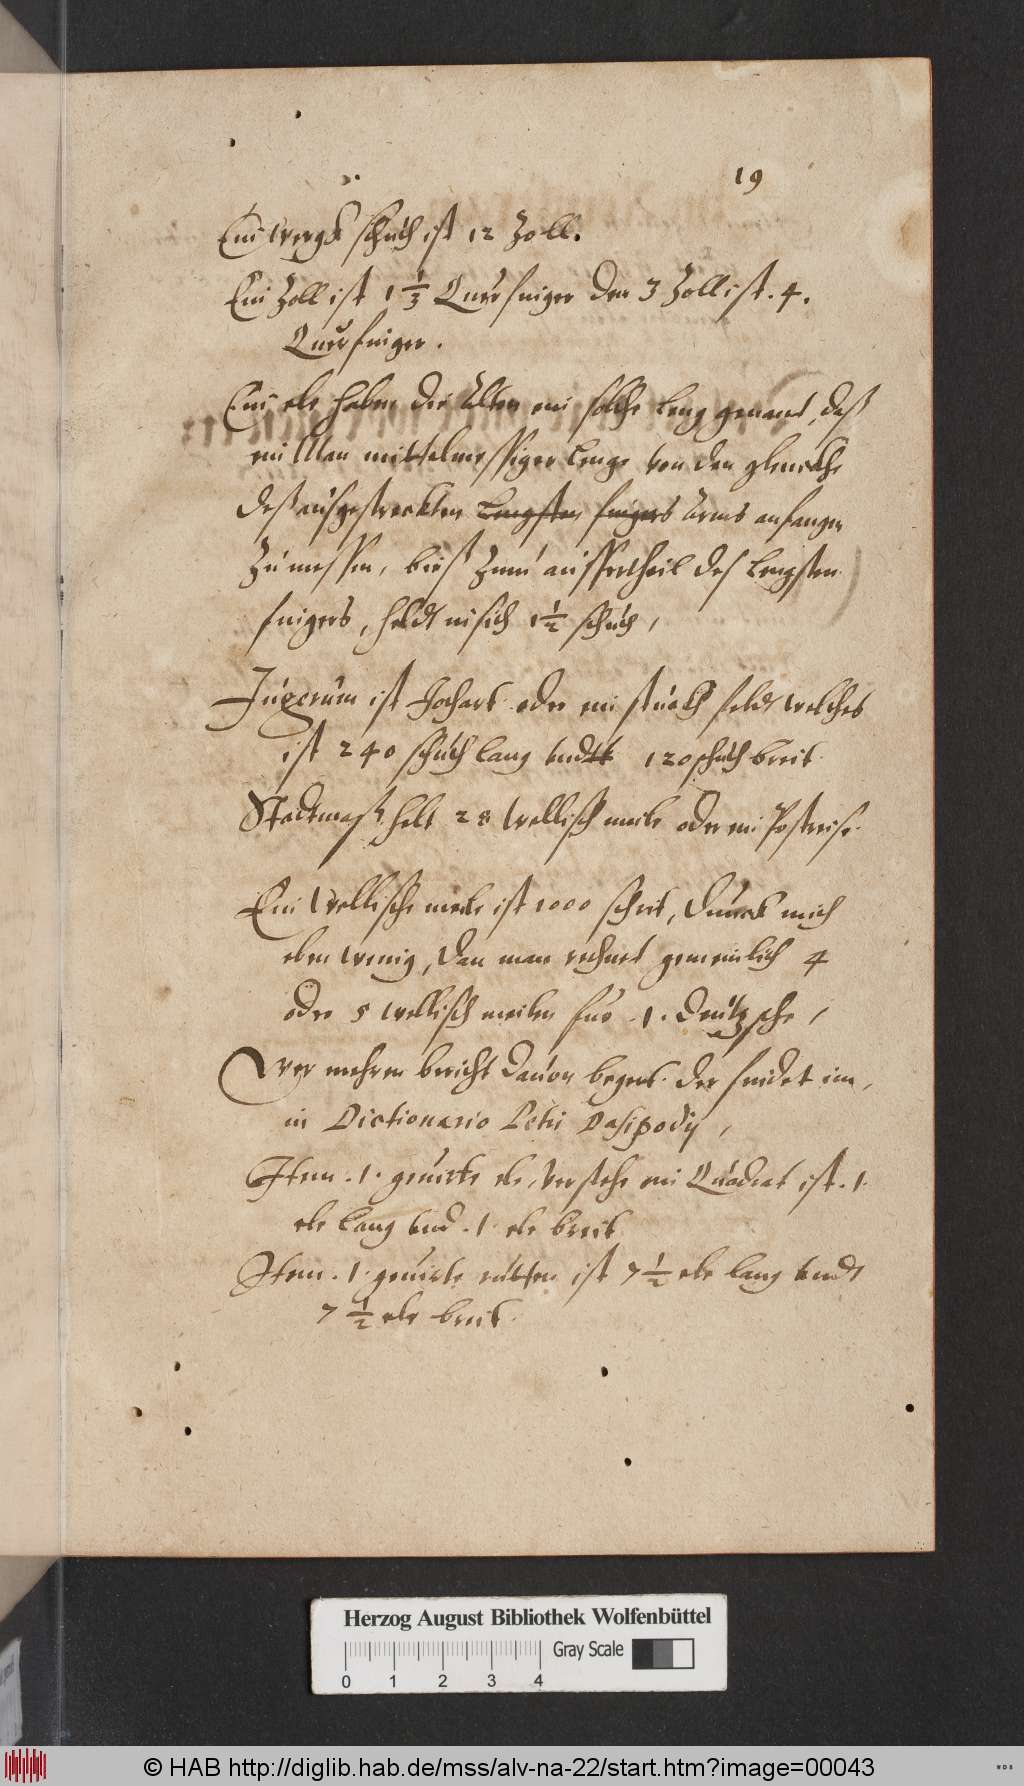 19
Ein wergk schuch ist 12 Zoll.
Ein Zoll ist 1 1/3 Quer finger den 3 Zoll ist . 4 .
Quer finger .
Ein ele haben die Alten ein solche leng genant, daß
ein Man mittelmessiger lenge von den glencke
deß ausgestreckten lengsten fingers Arms anfangen
zu messen, bieß zum aussertheil des lengsten
fingers, heldt in sich 1 1/2 schuch,
Jugerum ist Jochart oder ein stuck feldt welches
ist 240 schuch lang vndt 120 schuch breit
Stadtmaß helt 28 wellisch meile oder ein Postreise.
Ein wellische meile ist 1000 schrit, dunckt mich
eben wenig, dan man rechnet gemeinlich 4
oder 5 wellisch meilen fur .1. deutzsche,
wer mehren bericht dauon begert. der findet im,
in Dictionario Petri Dasipodij,
Item .1. geuirte ele, verstehe ein Quadrat ist .1.
ele lang vnd .1. ele breit
Item .1. geuirte rutten ist 7 1/2 ele lang vndt
7 1/2 ele breit.
Herzog August Bibliothek Wolfenbüttel
Gray Scale
0 1 2 3 4
© HAB http://diglib.hab.de/mss/alv-na-22/start.htm?image=00043